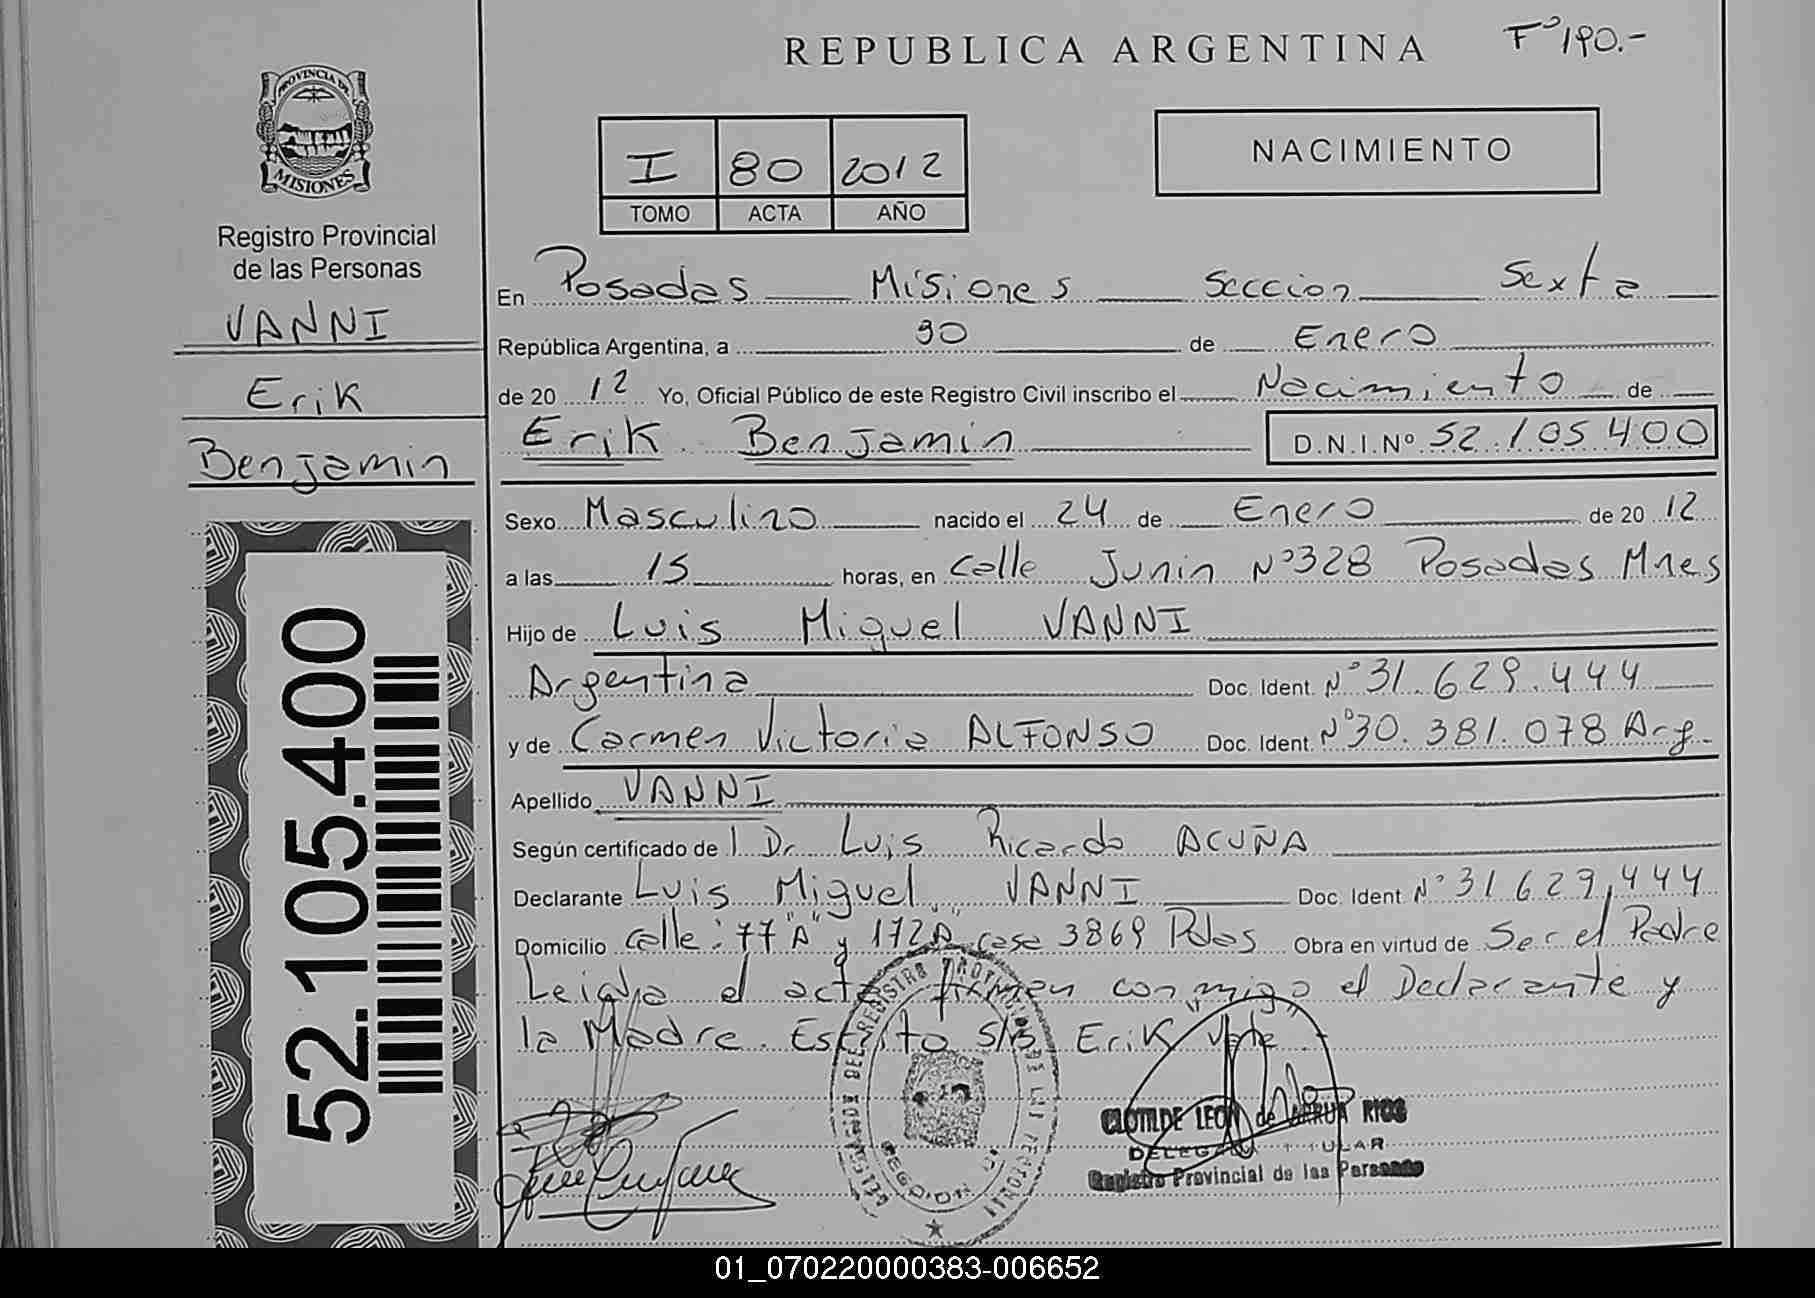 REPUBLICA ARGENTINA
Fº 190.-
PROVINCIA DE
MISIONES
Registro Provincial
de las Personas
VANNI
Erik
Benjamin
52.105.400
I 80 2012
TOMO ACTA AÑO
NACIMIENTO
En Posadas Misiones Seccion Sexta
República Argentina, a 30 de Enero
de 20 12 Yo, Oficial Público de este Registro Civil inscribo el Nacimiento de
Erik Benjamin D.N.I.Nº 52.105.400
Sexo Masculino nacido el 24 de Enero de 20 12
a las 15 horas, en calle Junin Nº 328 Posadas Mnes
Hijo de Luis Miguel VANNI
Argentina Doc. Ident. Nº 31.629.444
y de Carmen Victoria ALFONSO Doc. Ident. Nº 30.381.078 Arg.
Apellido VANNI
Según certificado del Dr Luis Ricardo ACUÑA
Declarante Luis Miguel VANNI Doc. Ident. Nº 31.629.444
Domicilio calle: 77"A" y 172A casa 3869 Pdas Obra en virtud de Ser el Padre
Leida el acta firman conmigo el Declarante y
la Madre. Escrito S/B "Erik" Vale
DELEGACION DEL REGISTRO PROVINCIAL DE LAS PERSONAS
CLOTILDE LEON de ARRUA RIOS
DELEGADA TITULAR
Registro Provincial de las Personas
01_070220000383-006652